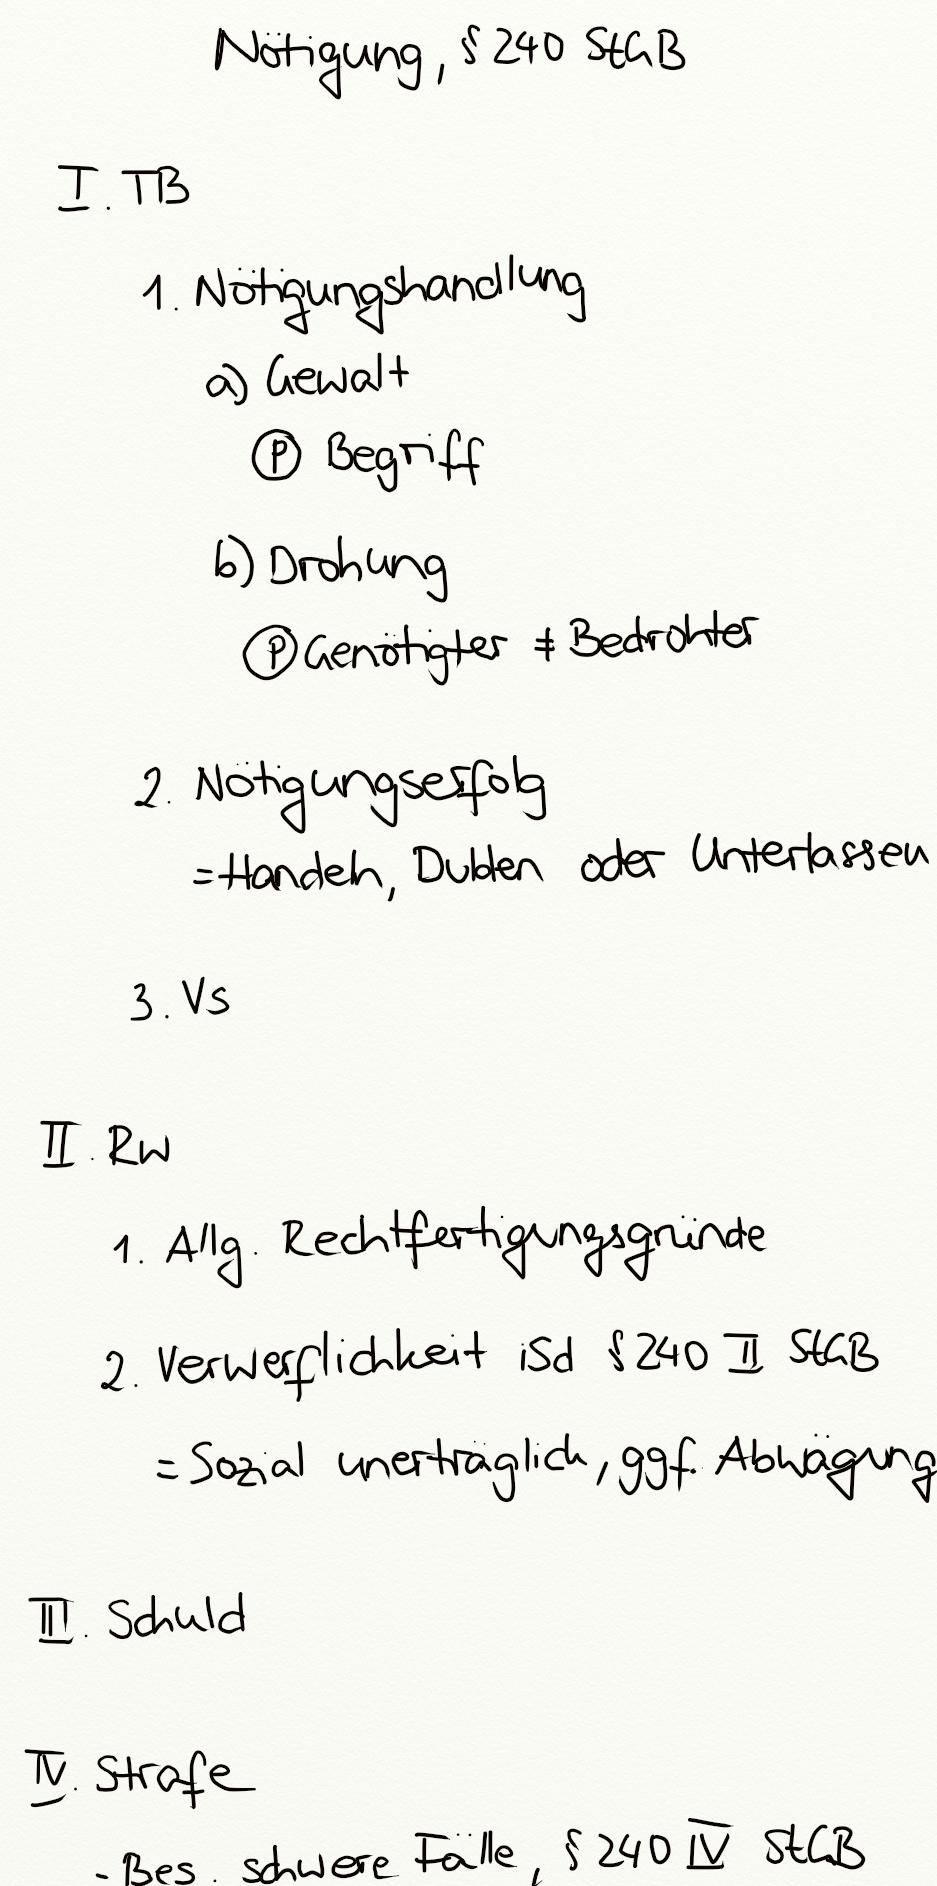 Nötigung, § 240 StGB
I. TB
1. Nötigungshandlung
a) Gewalt
Ⓟ Begriff
b) Drohung
Ⓟ Genötigter ≠ Bedrohter
2. Nötigungserfolg
= Handeln, Dulden oder Unterlassen
3. Vs
II. RW
1. Allg. Rechtfertigungsgründe
2. Verwerflichkeit iSd § 240 II StGB
= Sozial unerträglich, ggf. Abwägung
III. Schuld
IV. Strafe
- Bes. schwere Fälle, § 240 IV StGB